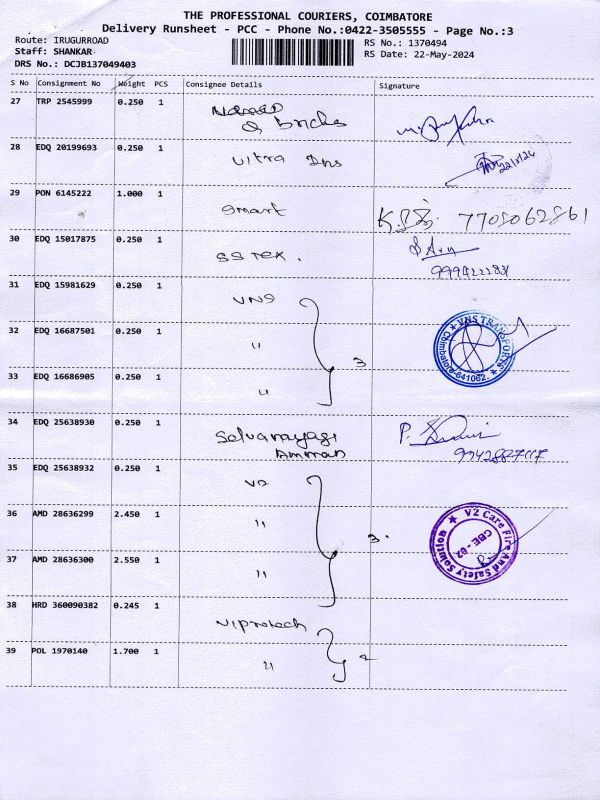 THE PROFESSIONAL COURIERS, COIMBATORE
Delivery Runsheet - PCC - Phone No.:0422-3505555 - Page No.:3
Route: IRUGURROAD
RS No.: 1370494
Staff: SHANKAR
RS Date: 22-May-2024
DRS No.: DCJB137049403
S No Consignment No Weight PCS Consignee Details Signature
27 TRP 2545999 0.250 1
28 EDQ 20199693 0.250 1 Ultra Ins 22/5/24
29 PON 6145222 1.000 1 smart 7705062861
30 EDQ 15017875 0.250 1 SS Tex.
31 EDQ 15981629 0.250 1 VNS
32 EDQ 16687501 0.250 1 " 3
VNS TRANSPORTS Coimbatore-641062.
33 EDQ 16686905 0.250 1 "
34 EDQ 25638930 0.250 1 Selvanayagi
Amman
35 EDQ 25638932 0.250 1 V2
36 AMD 28636299 2.450 1 " 3.
V2 Care Fire And Safety Solution CBE - 62
37 AMD 28636300 2.550 1 "
38 HRD 360090382 0.245 1 Viprotech
39 POL 1970140 1.700 1 " 2